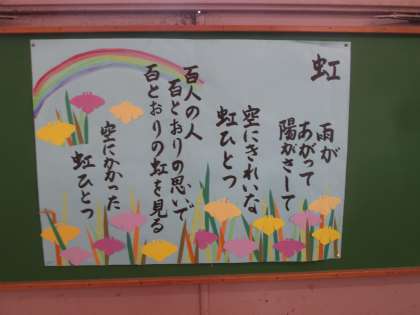 虹
雨が
あがって
陽がさして
空にきれいな
虹ひとつ
百人の人
百とおりの思いで
百とおりの虹を見る
空にかかった
虹ひとつ